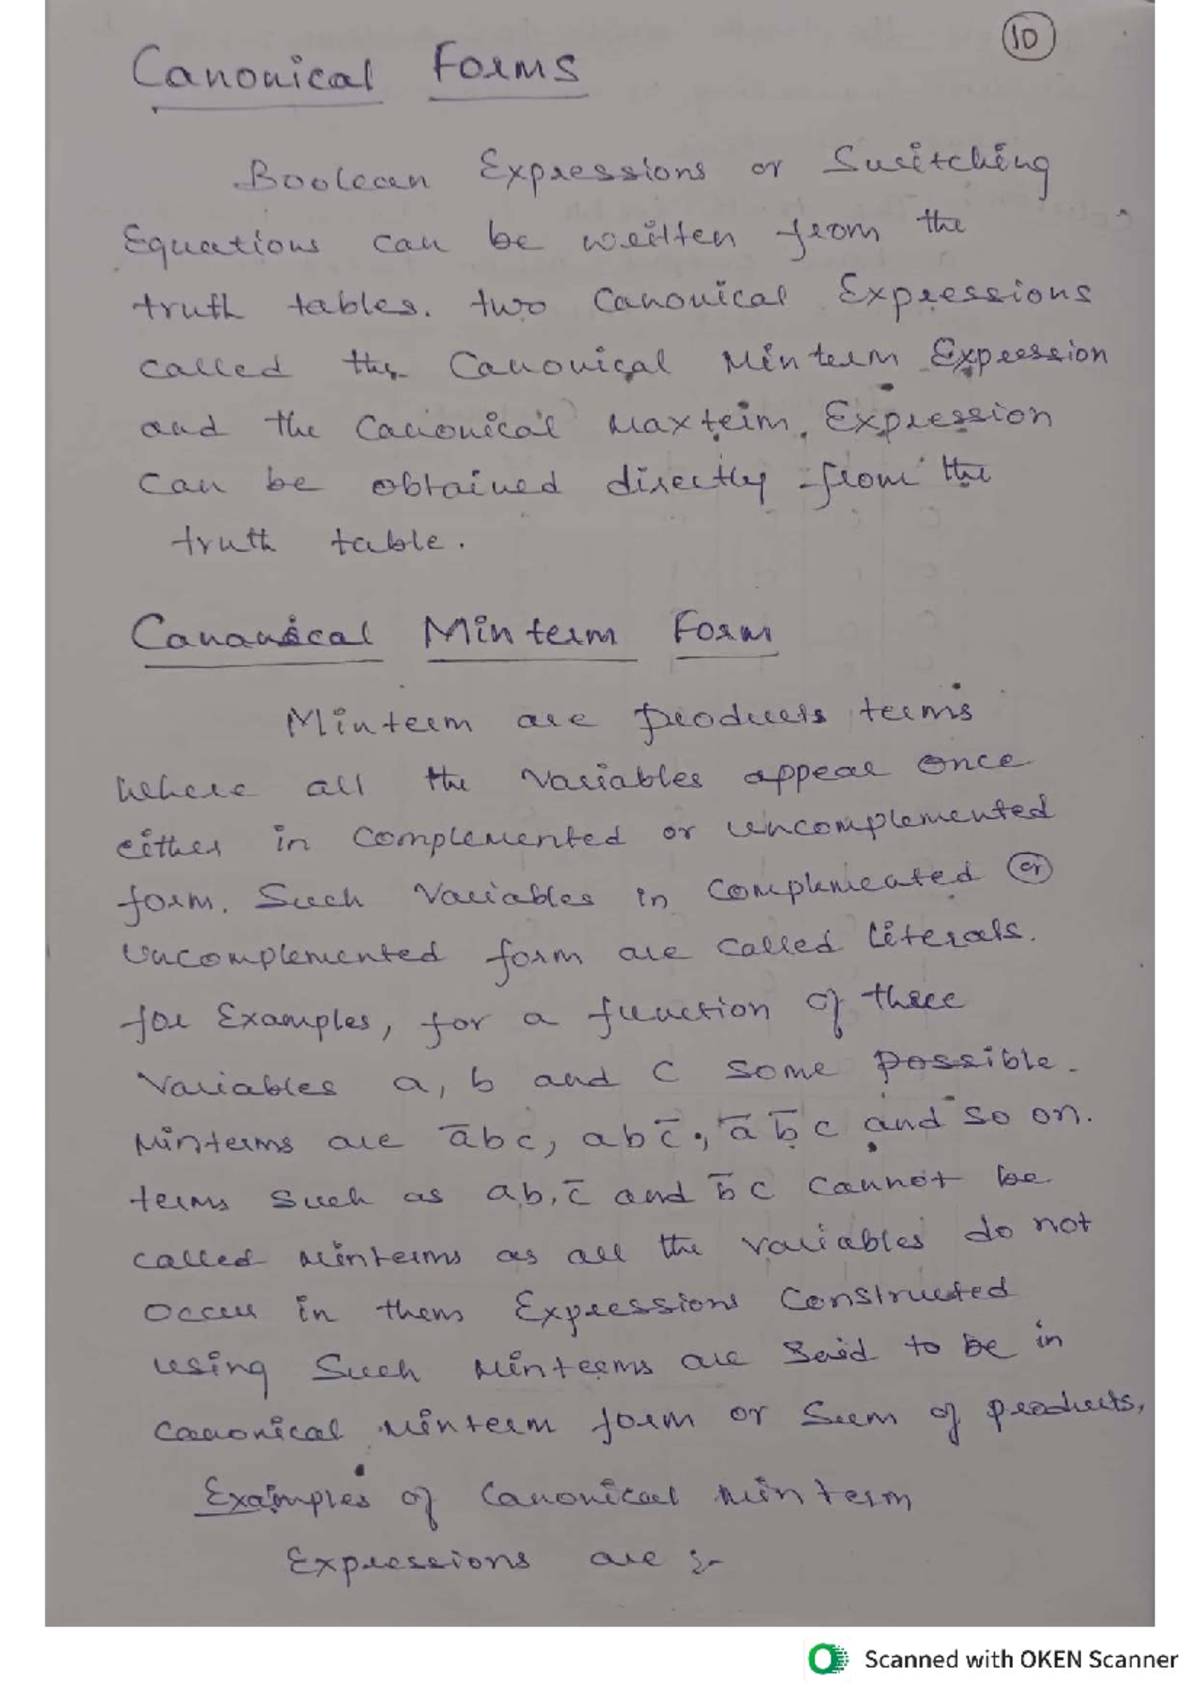 10
Canonical Forms
Boolean Expressions or Switching
Equations can be written from the
truth tables. two Canonical Expressions
called the Canonical Minterm Expression
and the Canonical Maxterm Expression
Can be obtained directly from the
truth table.
Canonical Minterm Form
Minterm are products terms
where all the variables appear once
either in complemented or uncomplemented
form. Such Variables in complemented or
Uncomplemented form are called literals.
for Examples, for a function of three
Variables a, b and c some possible
Minterms are a̅bc, abc̅, a̅b̅c and so on.
terms such as ab, c̅ and b̅c cannot be
called minterms as all the variables do not
occur in them Expressions Constructed
using Such Minterms are said to be in
Canonical Minterm form or Sum of products,
Examples of Canonical Minterm
Expressions are :-
Scanned with OKEN Scanner